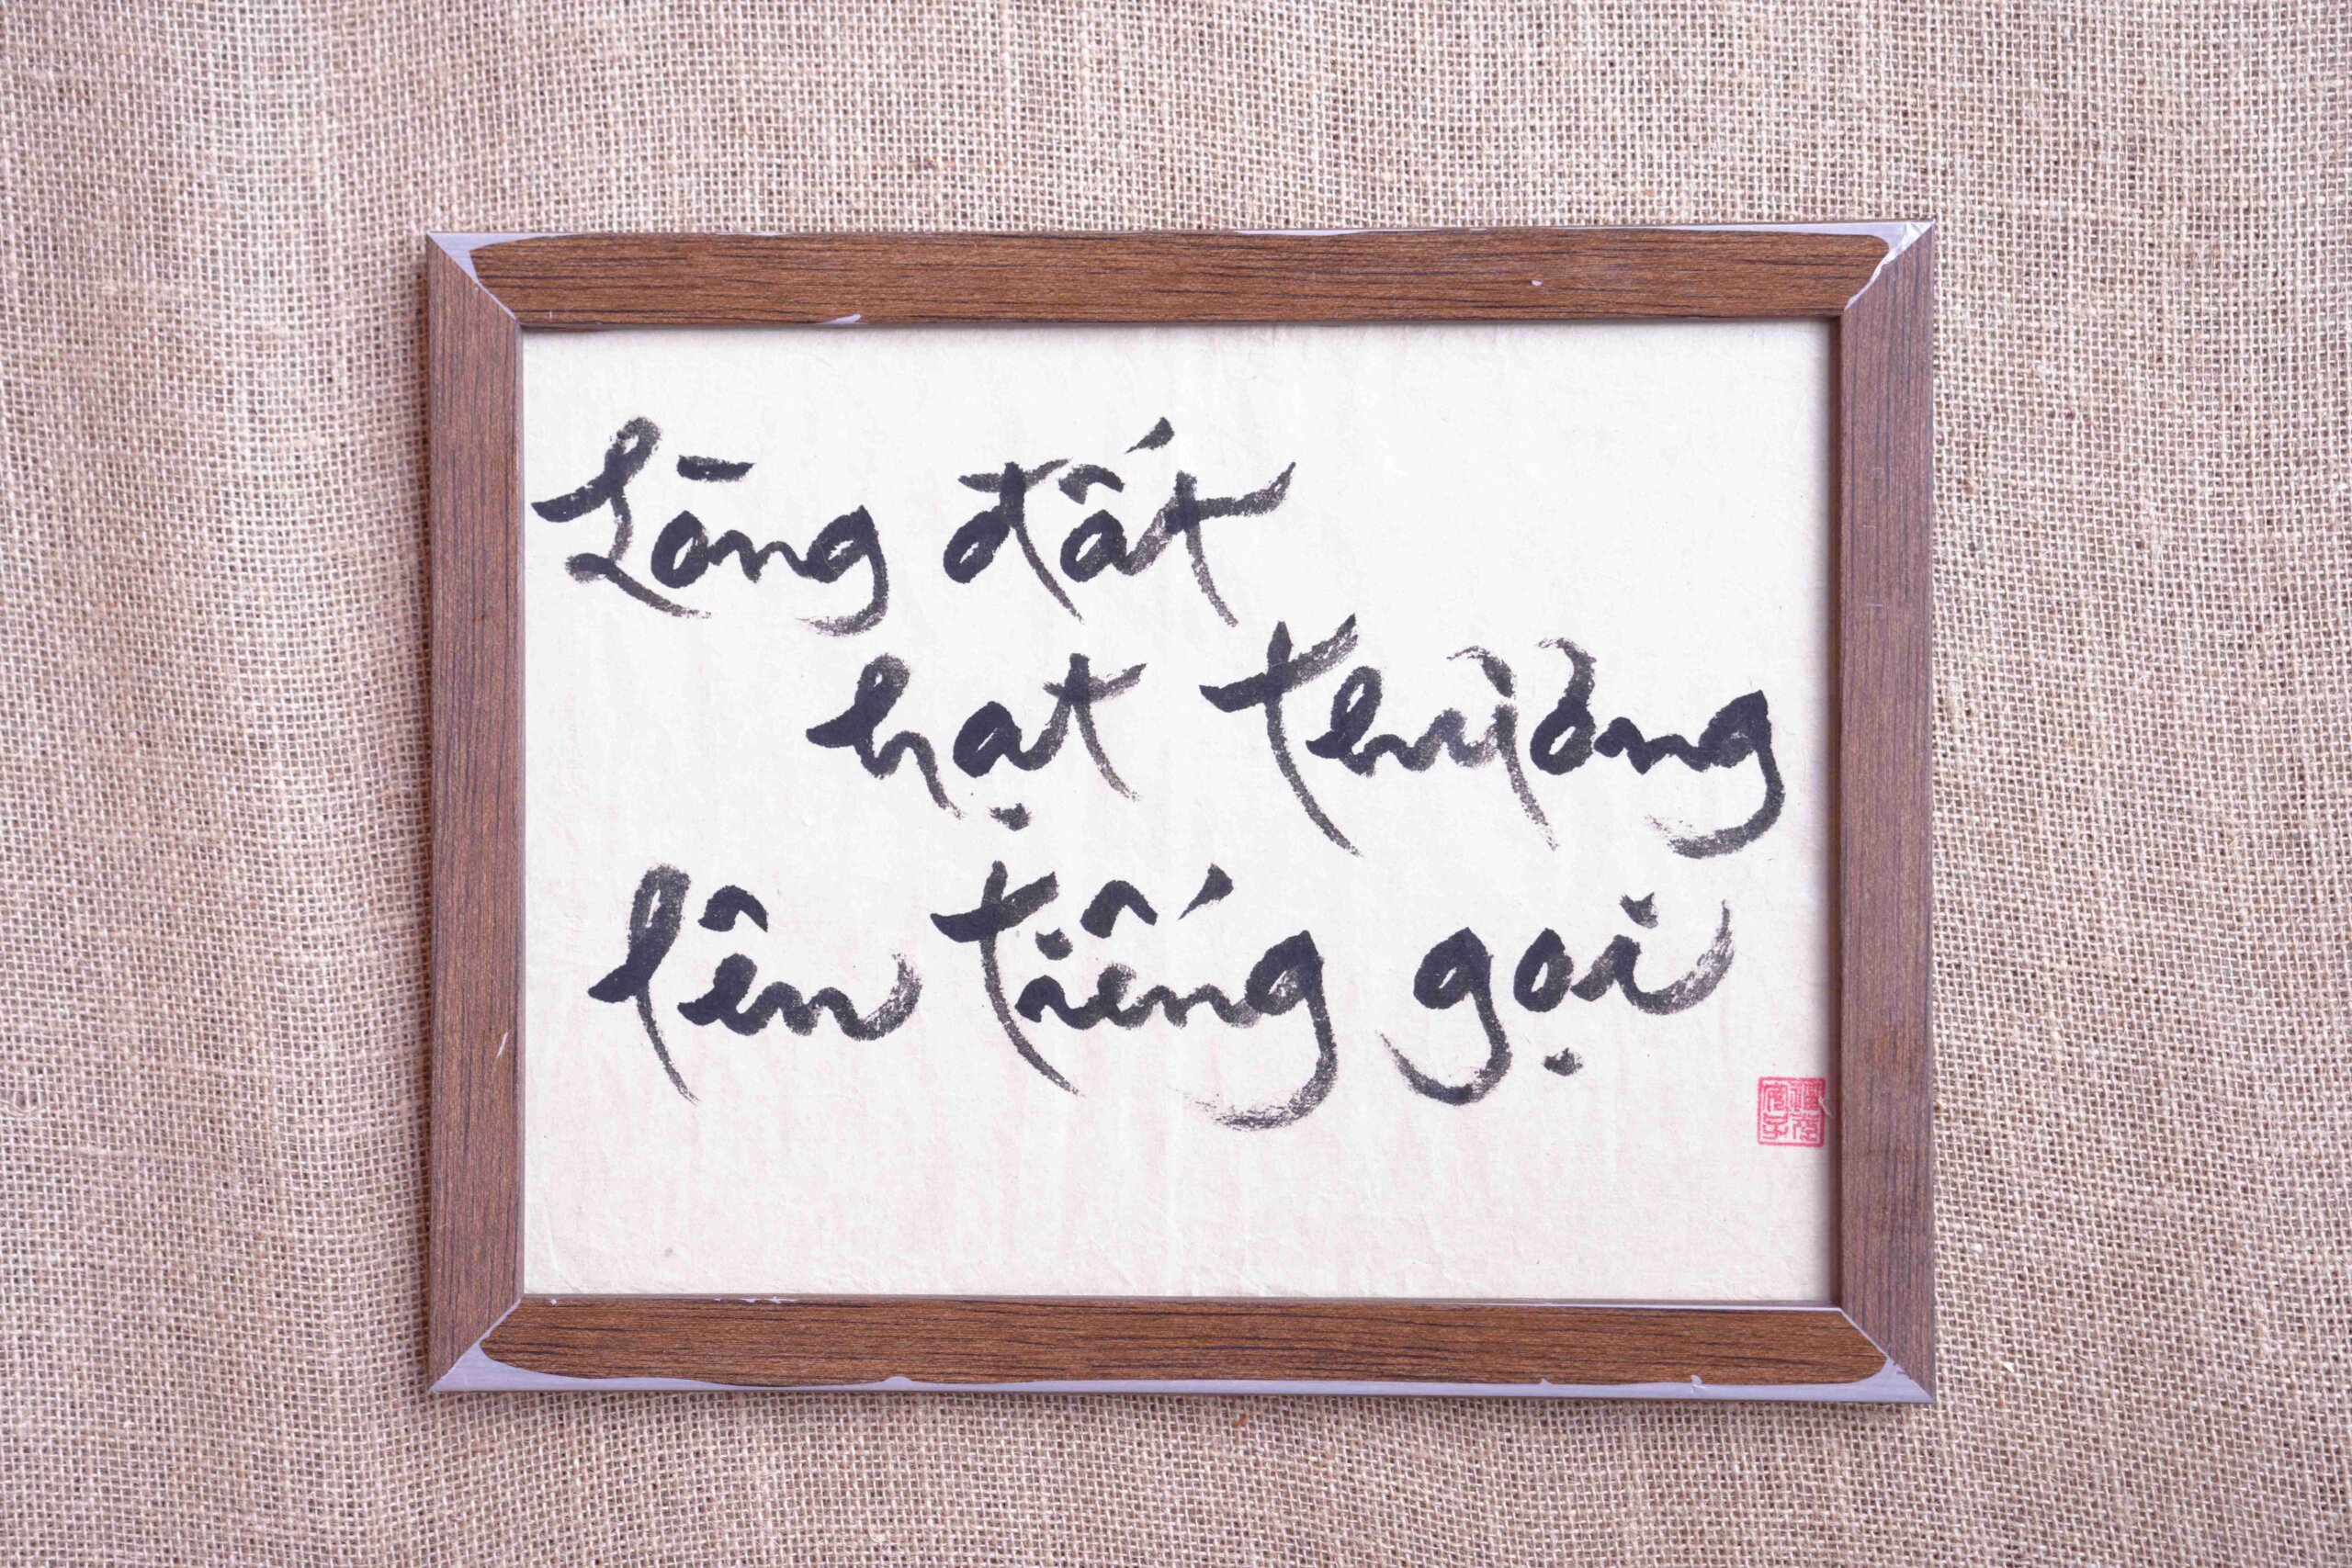 Lòng đất
hạt thương
lên tiếng gọi